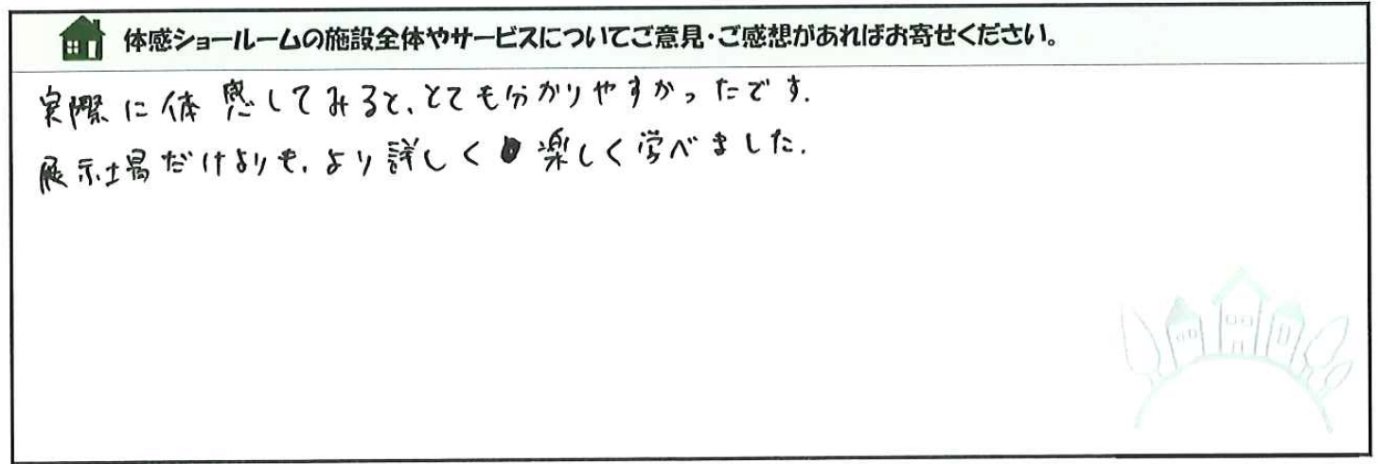 体感ショールームの施設全体やサービスについてご意見・ご感想があればお寄せください。
実際に体感してみると、とても分かりやすかったです.
展示場だけよりも、より詳しく楽しく学べました.